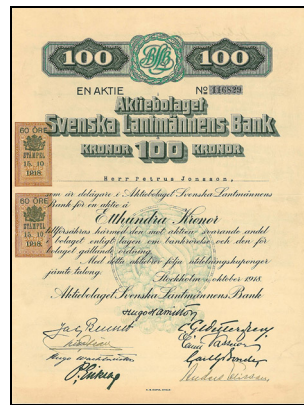 100 100
EN AKTIE № 116829
Aktiebolaget
Svenska Lantmännens Bank
KRONOR 100 KRONOR
Herr Petrus Jonsson,
som är delägare i Aktiebolaget Svenska Lantmännens
Bank för en aktie å
Etthundra Kronor
tillförsäkras härmed den mot aktien svarande andel
i bolaget enligt lagen om bankrörelse och den för
bolaget gällande ordning.
Med detta aktiebrev följa utdelningskuponger
jämte talong.
Stockholm i oktober 1918.
Aktiebolaget Svenska Lantmännens Bank
Hugo Hamilton
60 ÖRE
STÄMPEL
15. 10
1918
60 ÖRE
STÄMPEL
15. 10
1918